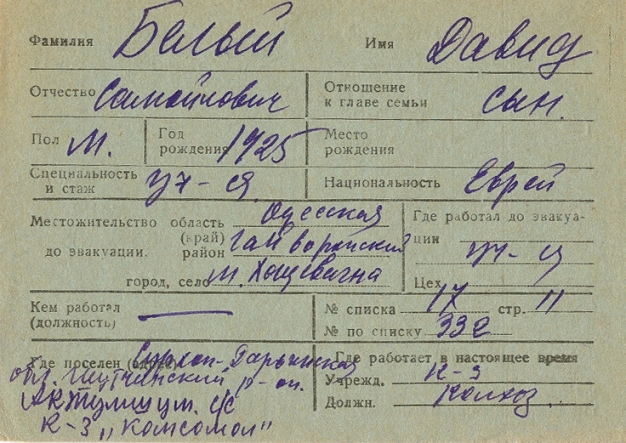 Фамилия Белый Имя Давид
Отчество Самойлович Отношение к главе семьи сын.
Пол М. Год рождения 1925 Место рождения
Специальность и стаж уч-ся Национальность Еврей
Местожительство до эвакуации. область (край) Одесская
район Гайворонский
город, село м. Хощевата
Где работал до эвакуации уч-ся
Цех
Кем работал (должность) —
№ списка 17 стр. 11
№ по списку 332
Где поселен (адрес) Сырдарьинская
обл. р-он.
с/с
к-з „Комсомол"
Где работает в настоящее время
Учрежд. к-з
Должн. Колхоз.